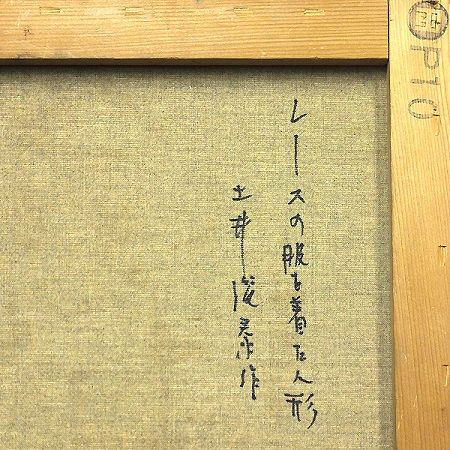 レースの服を着た人形
土井俊泰作
P10